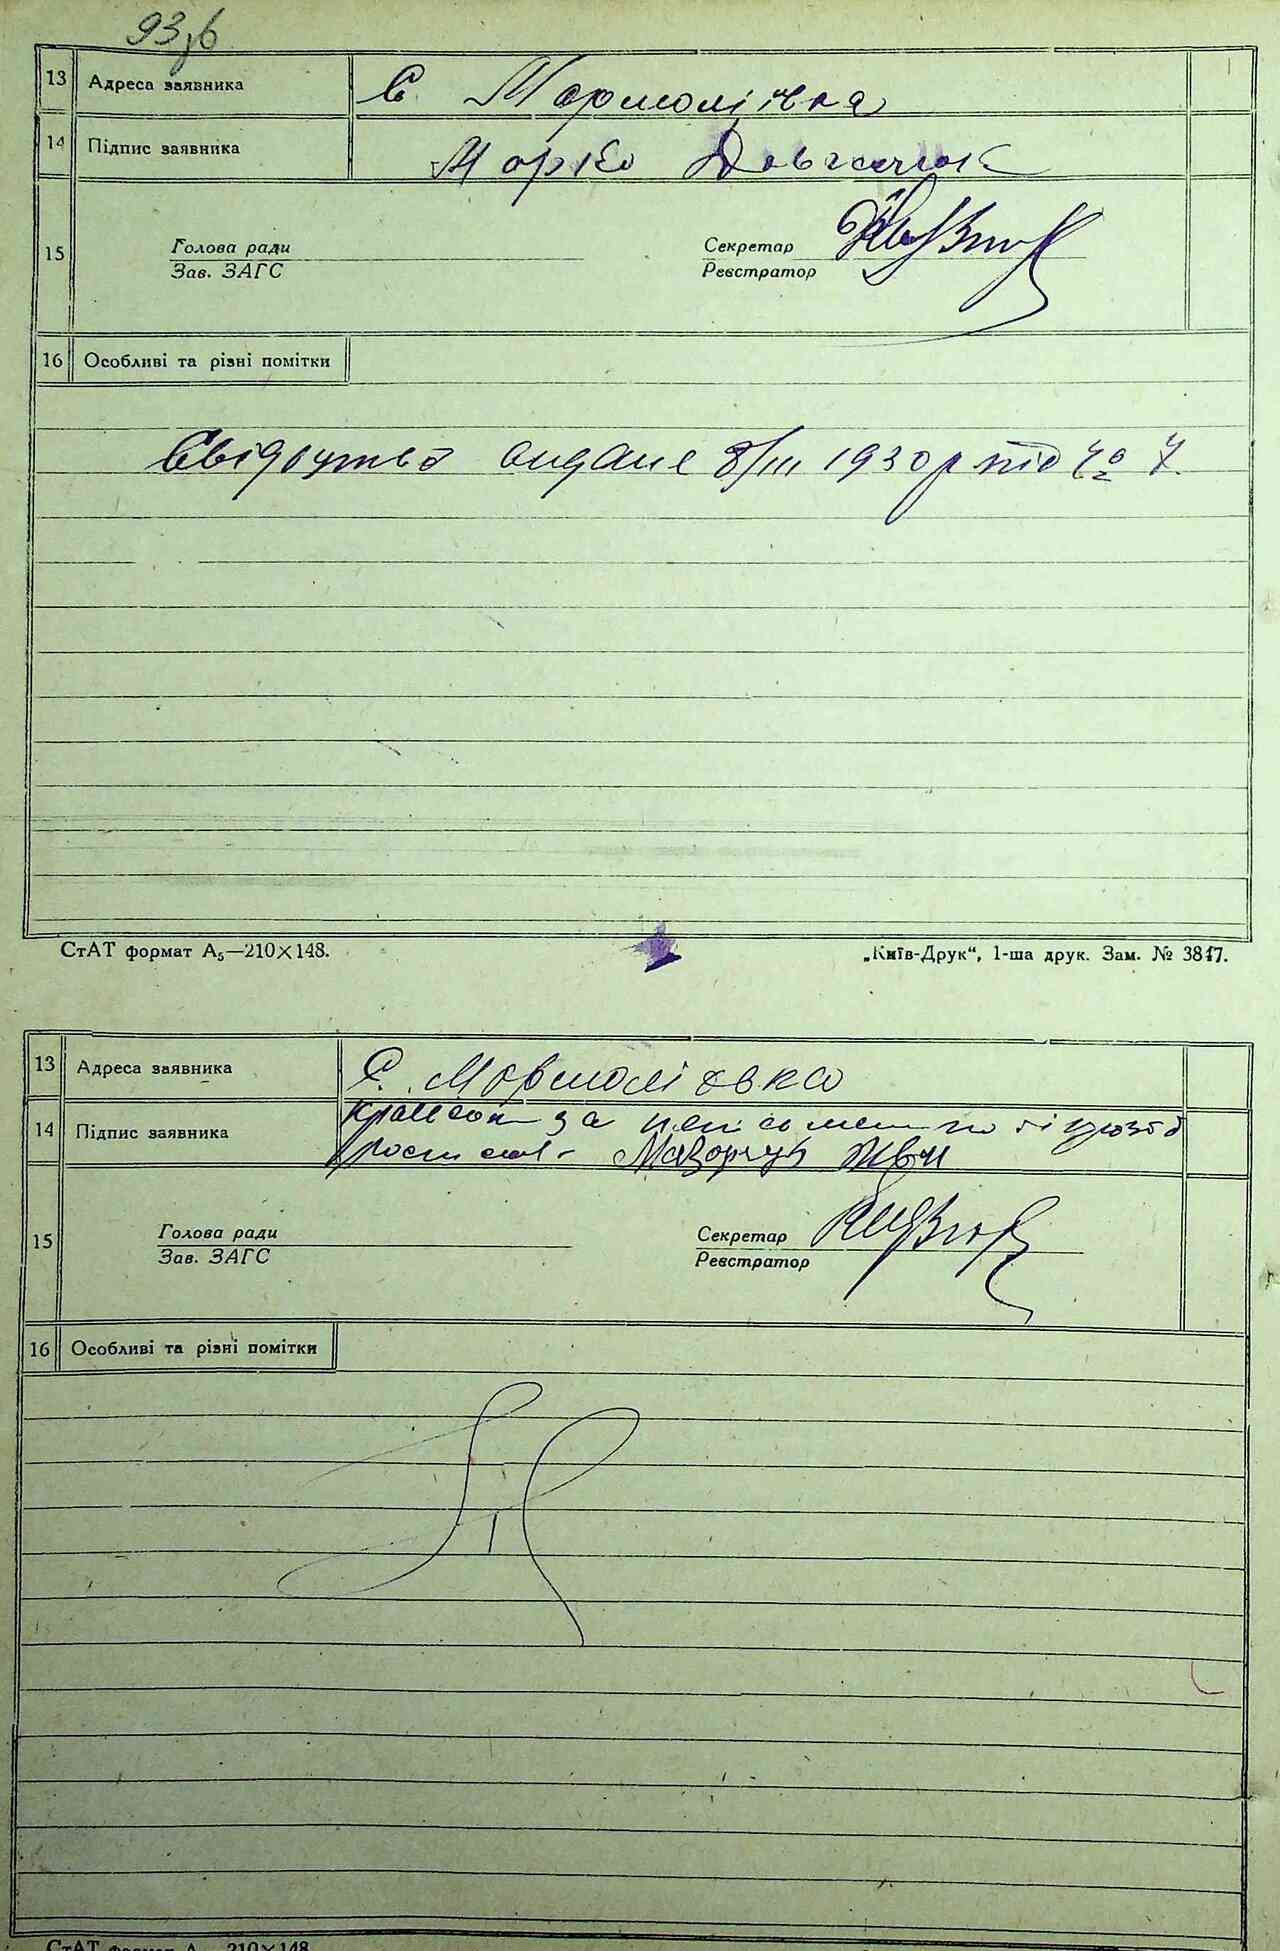 93зв
13 Адреса заявника С Мормоліївка
14 Підпис заявника Марко Довганюк
15 Голова ради Секретар
Зав. ЗАГС Реєстратор
16 Особливі та різні помітки
Свідоцтво видане 8/III 1930 р під № 7.
СтАТ формат А₅—210×148. „Київ-Друк“, 1-ша друк. Зам. № 3847.
13 Адреса заявника С. Мормоліївка
14 Підпис заявника за неписьменного
15 Голова ради Секретар
Зав. ЗАГС Реєстратор
16 Особливі та різні помітки
СтАТ формат А₅—210×148